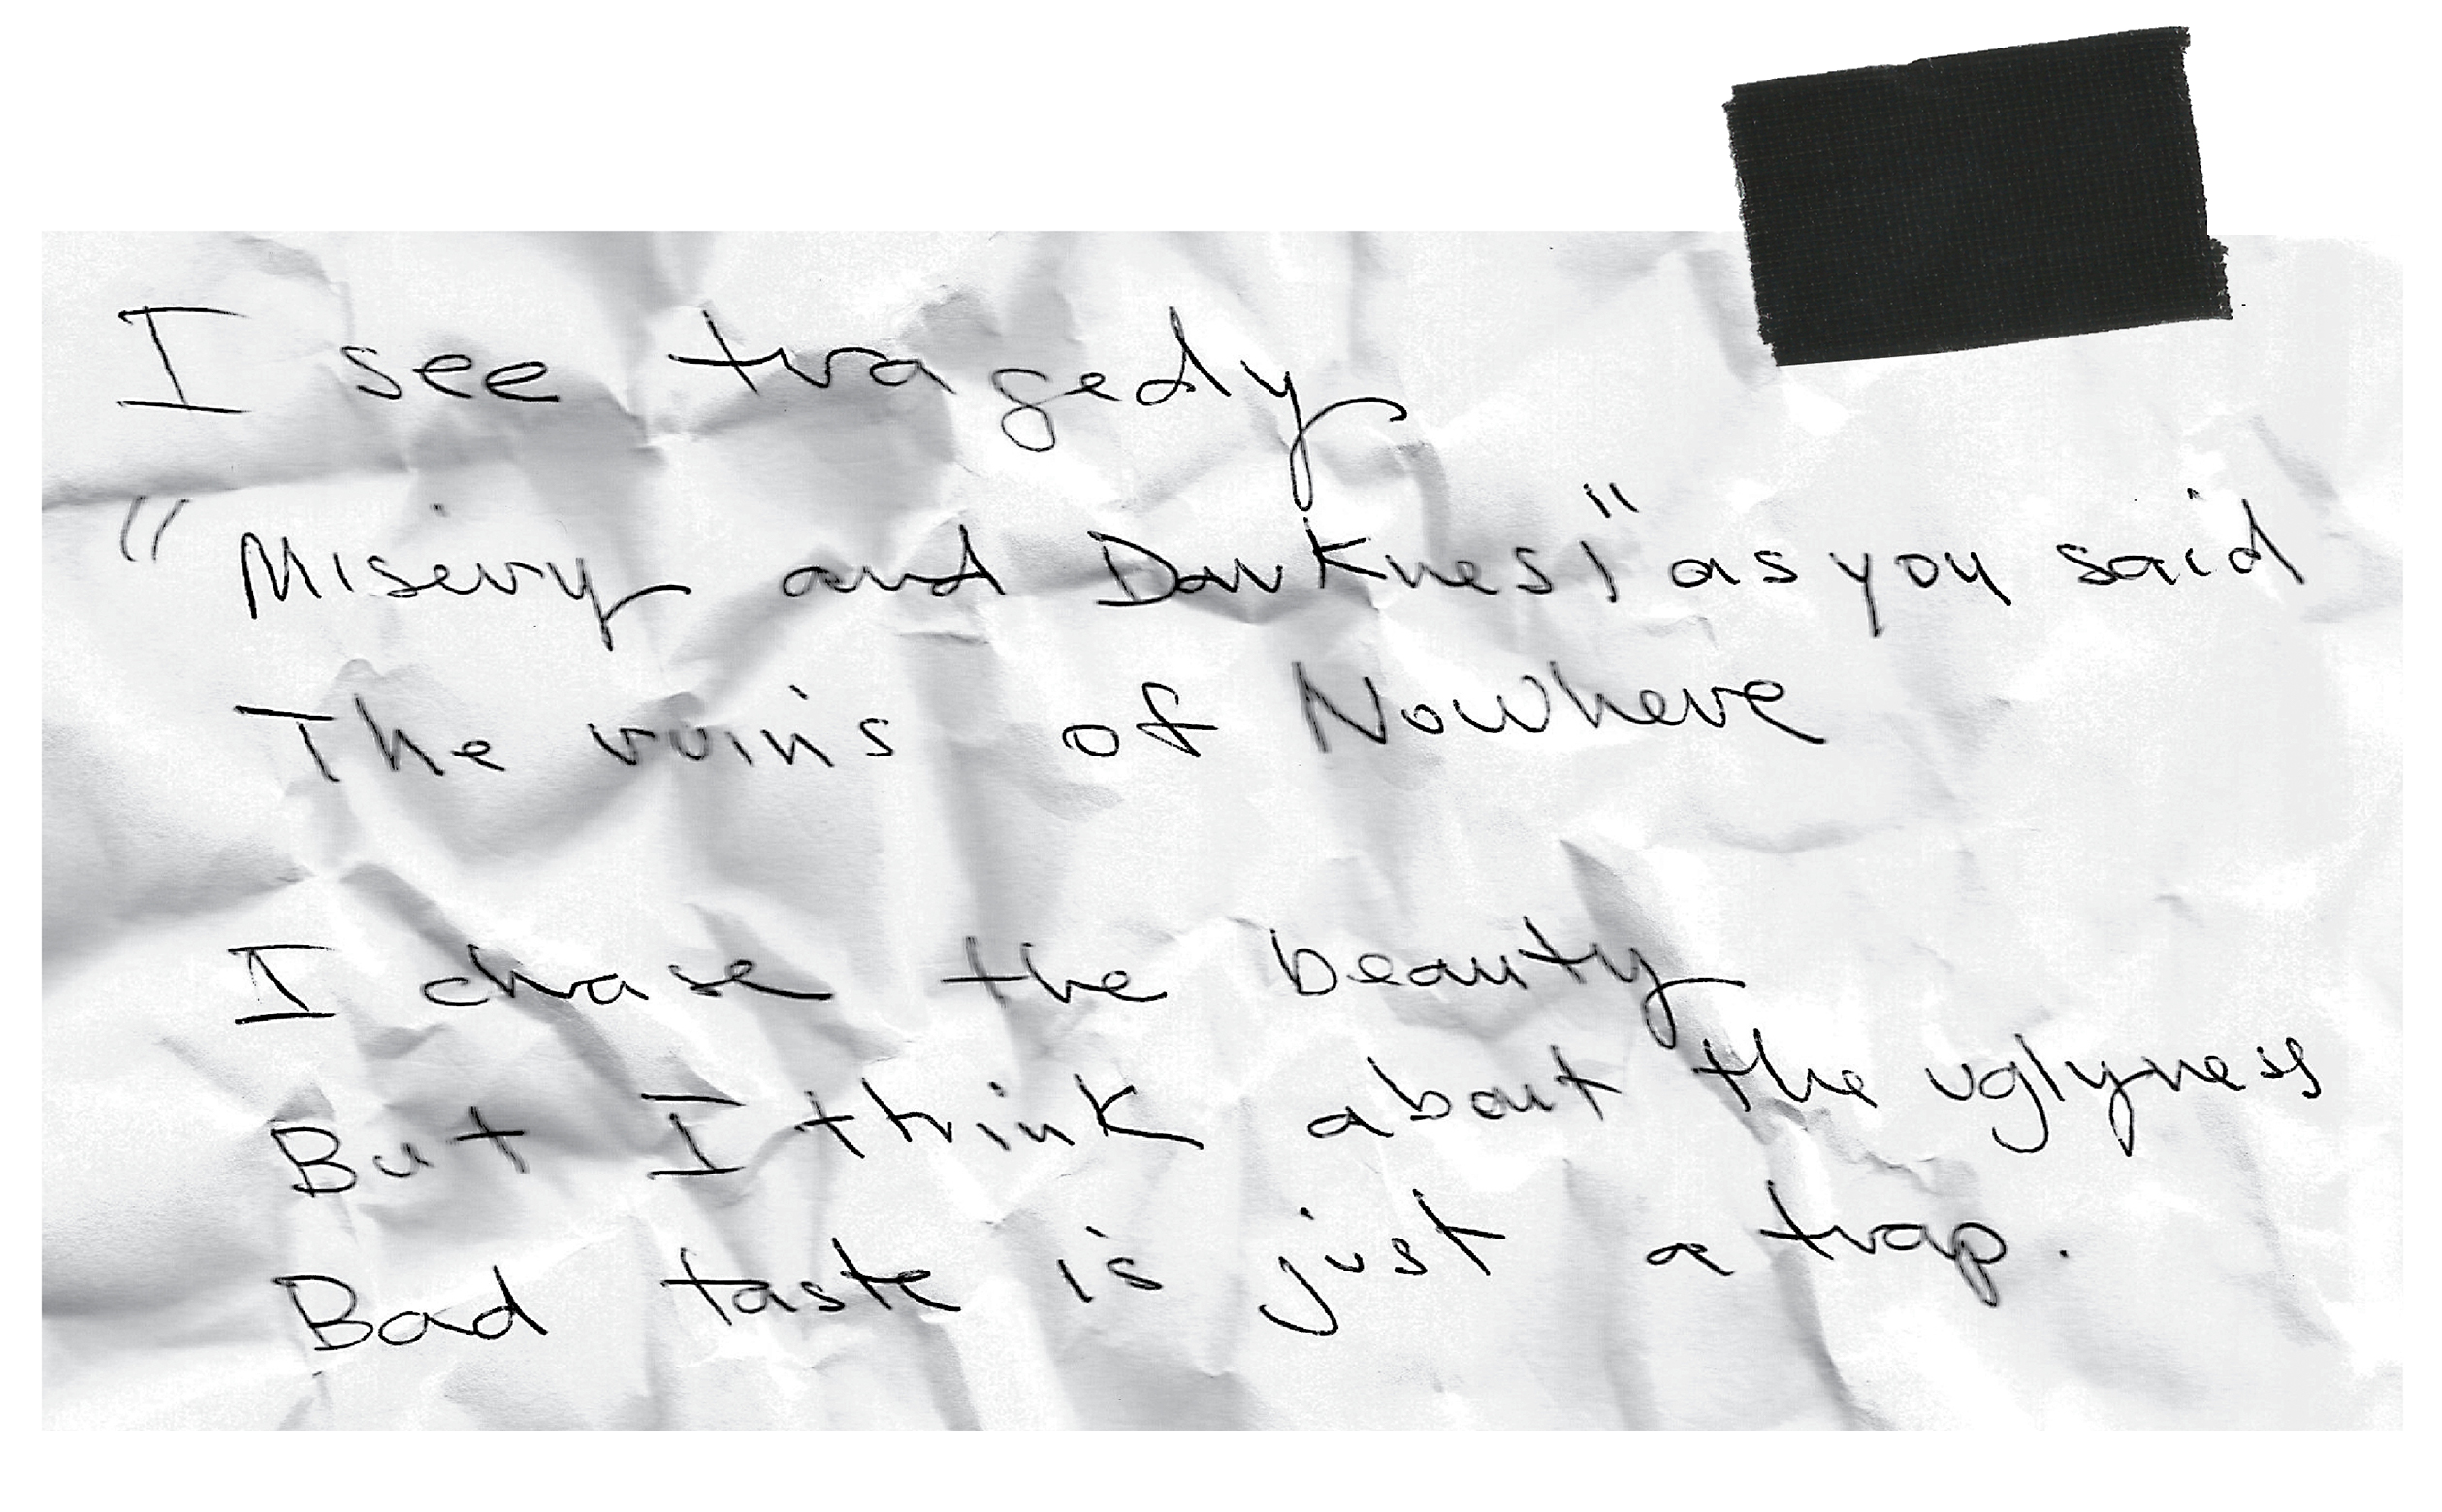 I see tragedy
"Misery and Darkness" as you said
The ruins of Nowhere
I chase the beauty
But I think about the uglyness
Bad taste is just a trap.